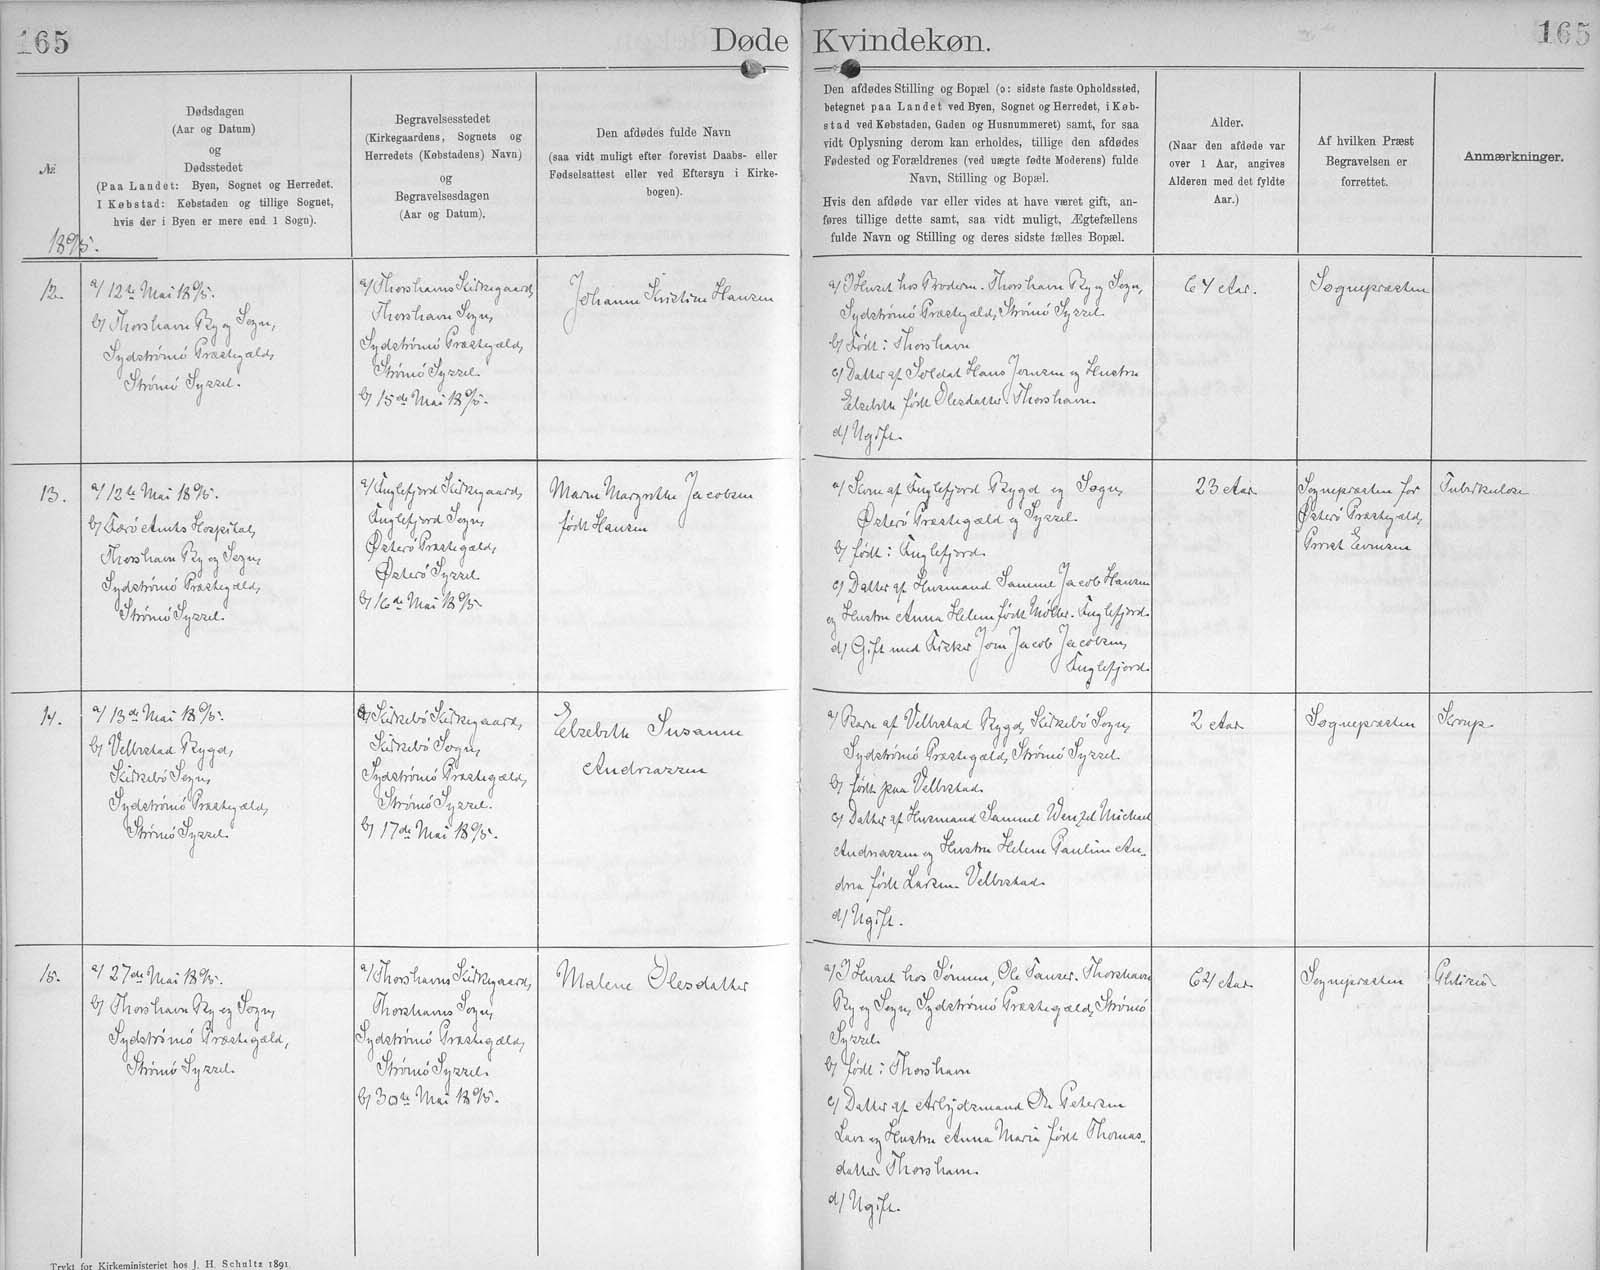 165
Døde
Dødsdagen
(Aar og Datum)
og
Dødsstedet
(Paa Landet: Byen, Sognet og Herredet.
I Købstad: Købstaden og tillige Sognet,
hvis der i Byen er mere end 1 Sogn).
№
1895.
Begravelsesstedet
(Kirkegaardens, Sognets og
Herredets (Købstadens) Navn)
og
Begravelsesdagen
(Aar og Datum).
Den afdødes fulde Navn
(saa vidt muligt efter forevist Daabs- eller
Fødselsattest eller ved Eftersyn i Kirke-
bogen).
12.
a/ 12te Mai 1895.
b/ Thorshavn By og Sogn,
Sydstrømø Præstegæld,
Strømø Syssel.
a/ Thorshavns Kirkegaard,
Thorshavn Sogn,
Sydstrømø Præstegæld,
Strømø Syssel.
b/ 15de Mai 1895.
Johanne Kristine Hansen
13.
a/ 12te Mai 1895.
b/ Færø Amts Hospital,
Thorshavn By og Sogn,
Sydstrømø Præstegæld,
Strømø Syssel.
a/ Fuglefjord Kirkegaard,
Fuglefjord Sogn,
Østerø Præstegæld,
Østerø Syssel
b/ 16de Mai 1895.
Maren Margrethe Jacobsen
født Hansen
14.
a/ 13de Mai 1895.
b/ Velbestad Bygd,
Kirkebø Sogn,
Sydstrømø Præstegæld,
Strømø Syssel.
a/ Kirkebø Kirkegaard,
Kirkebø Sogn,
Sydstrømø Præstegæld,
Strømø Syssel.
b/ 17de Mai 1895.
Elsebeth Susanne
Andreassen
15.
a/ 27de Mai 1895.
b/ Thorshavn By og Sogn,
Sydstrømø Præstegæld,
Strømø Syssel.
a/ Thorshavns Kirkegaard,
Thorshavns Sogn,
Sydstrømø Præstegæld,
Strømø Syssel.
b/ 30te Mai 1895.
Malene Olesdatter
Trykt for Kirkeministeriet hos J. H. Schultz 1891.
Kvindekøn.
165
Den afdødes Stilling og Bopæl (ɔ: sidste faste Opholdssted,
betegnet paa Landet ved Byen, Sognet og Herredet, i Køb-
stad ved Købstaden, Gaden og Husnummeret) samt, for saa
vidt Oplysning derom kan erholdes, tillige den afdødes
Fødested og Forældrenes (ved uægte fødte Moderens) fulde
Navn, Stilling og Bopæl.
Hvis den afdøde var eller vides at have været gift, an-
føres tillige dette samt, saa vidt muligt, Ægtefællens
fulde Navn og Stilling og deres sidste fælles Bopæl.
Alder.
(Naar den afdøde var
over 1 Aar, angives
Alderen med det fyldte
Aar.)
Af hvilken Præst
Begravelsen er
forrettet.
Anmærkninger.
a/ I Huset hos Broderen. Thorshavn By og Sogn,
Sydstrømø Præstegæld, Strømø Syssel.
b/ Født i Thorshavn
c/ Datter af Soldat Hans Joensen og Hustru
Elsebeth født Olesdatter. Thorshavn.
d/ Ugift.
64 Aar.
Sognepræsten
a/ Kone af Fuglefjord Bygd og Sogn,
Østerø Præstegæld og Syssel.
b/ født i Fuglefjord.
c/ Datter af Husmand Samuel Jacob Hansen
og Hustru Anna Helene født Møller. Fuglefjord.
d/ Gift med Fisker Joen Jacob Jacobsen,
Fuglefjord.
23 Aar.
Sognepræsten for
Østerø Præstegæld,
Provst Evensen
Tuberkulose
a/ Barn af Velbestad Bygd, Kirkebø Sogn,
Sydstrømø Præstegæld, Strømø Syssel.
b/ født paa Velbestad.
c/ Datter af Husmand Samuel Wenzel Michael
Andreassen og Hustru Helene Pauline An-
drea født Larsen. Velbestad.
d/ Ugift.
2 Aar
Sognepræsten
Krup
a/ I Huset hos Sønnen, Ole Hansen. Thorshavn
By og Sogn, Sydstrømø Præstegæld, Strømø
Syssel.
b/ født i Thorshavn
c/ Datter af Arbejdsmand Ole Petersen
og Hustru Anna Maria født Thomas-
datter. Thorshavn.
d/ Ugift.
64 Aar
Sognepræsten